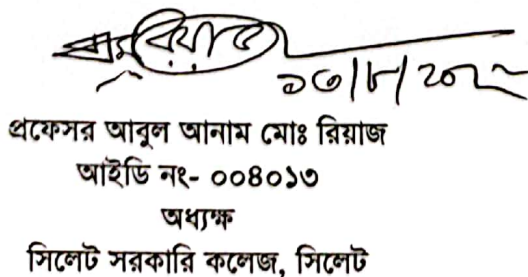 ১৩/৮/২০২২
প্রফেসর আবুল আনাম মোঃ রিয়াজ
আইডি নং- ০০৪০১৩
অধ্যক্ষ
সিলেট সরকারি কলেজ, সিলেট